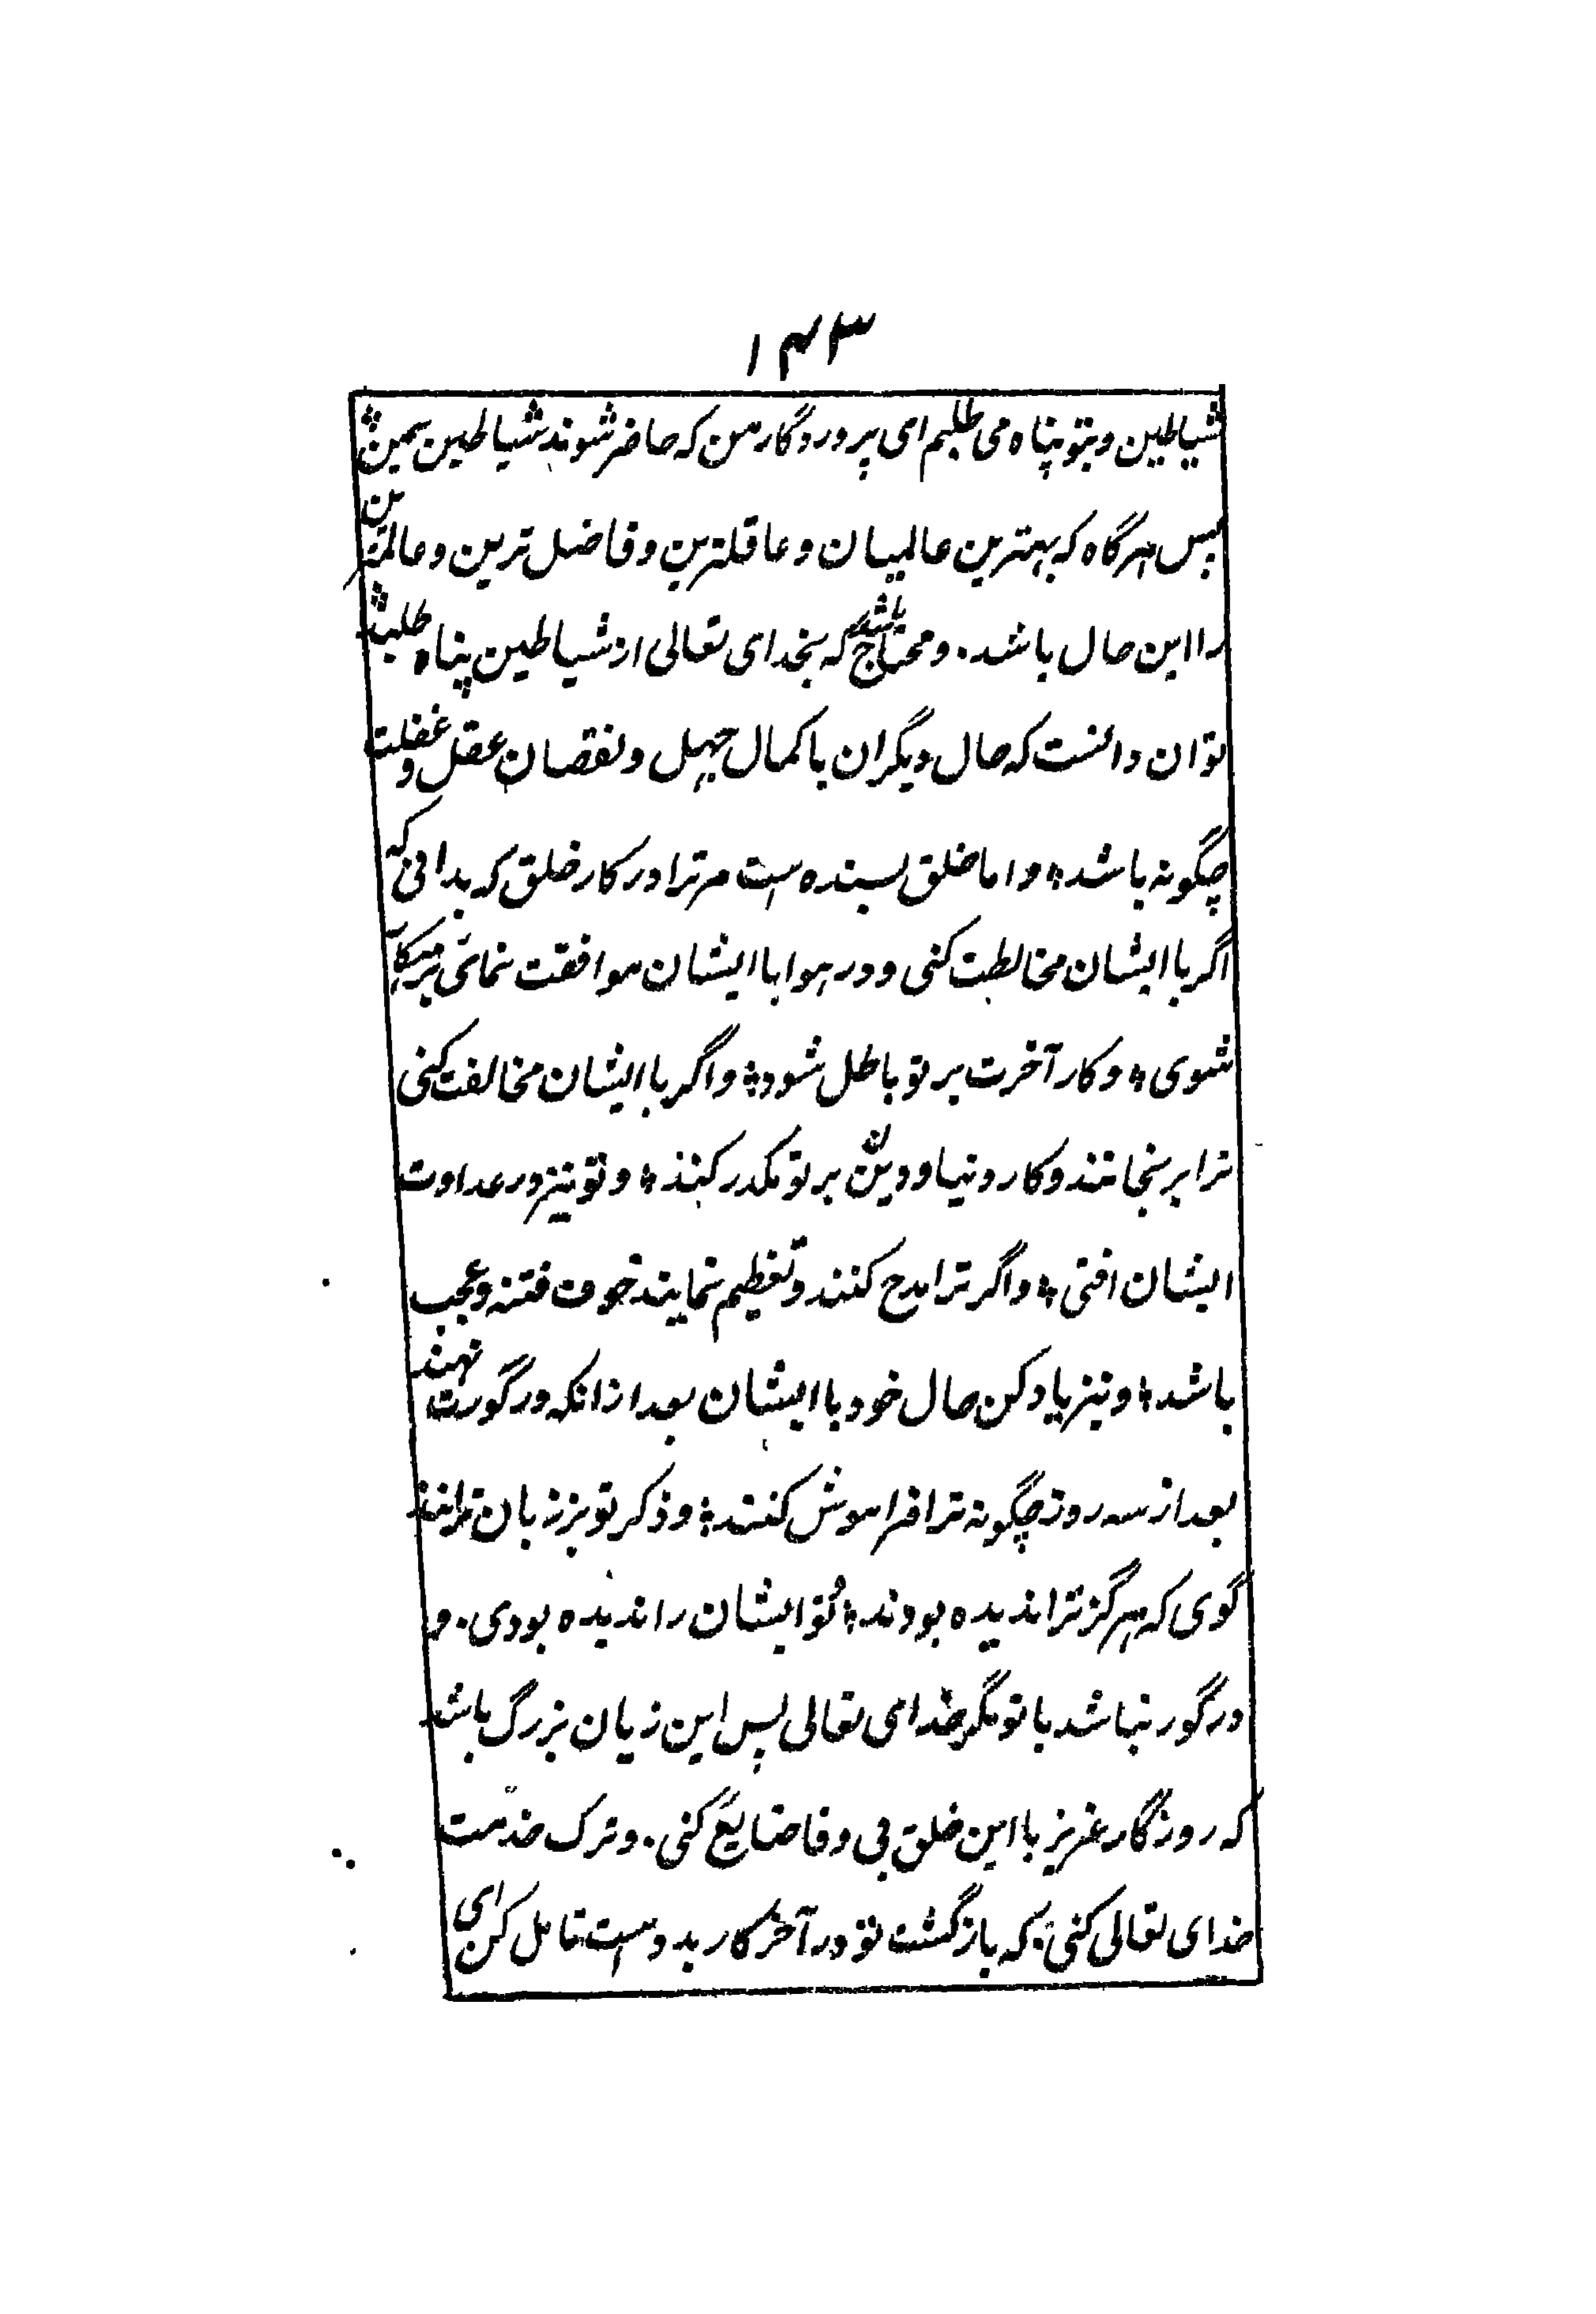 ۱۴۳
شیاطین و بتو پناه می طلبم ای پروردگار من که حاضر شوند شیاطین بمن ؞
پس هرگاه که بهترین عالمیان و عاقلترین و فاضل ترین و عالمترین
را این حال باشد . و محتاج باشد که بخدای تعالی از شیاطین پناه طلبد ؞
توان دانست که حال دیگران با کمال جهل و نقصان عقل و غفلت
چگونه باشد ؞ و اما خلق بسنده است مر ترا در کار خلق که بدانی که
اگر با ایشان مخالطت کنی و در هوا با ایشان موافقت نمائی بزهکار
شوی ؞ و کار آخرت بر تو باطل شود ؞ و اگر با ایشان مخالفت کنی
ترا برنجانند و کار دنیا و دین بر تو مکدر کنند ؞ و تو نیز در عداوت
ایشان افتی ؞ و اگر ترا مدح کنند و تعظیم نمایند خوف فتنه و عجب
باشد ؞ و نیز یاد کن حال خود با ایشان بعد از انکه در گورت نهند
بعد از سه روز چگونه ترا فراموش کنند ؞ و ذکر تو بر زبان نرانند
گوی که هرگز ترا ندیده بودند ؞ تو ایشان را ندیده بودی . و
در گور نباشد با تو مگر خدای تعالی پس این زیان بزرگ باشد
که روزگار عزیز با این خلق بی وفا ضایع کنی . و ترک خدمت
خدای تعالی کنی ؞ که بازگشت تو در آخر کار بدوست تامل کن ای